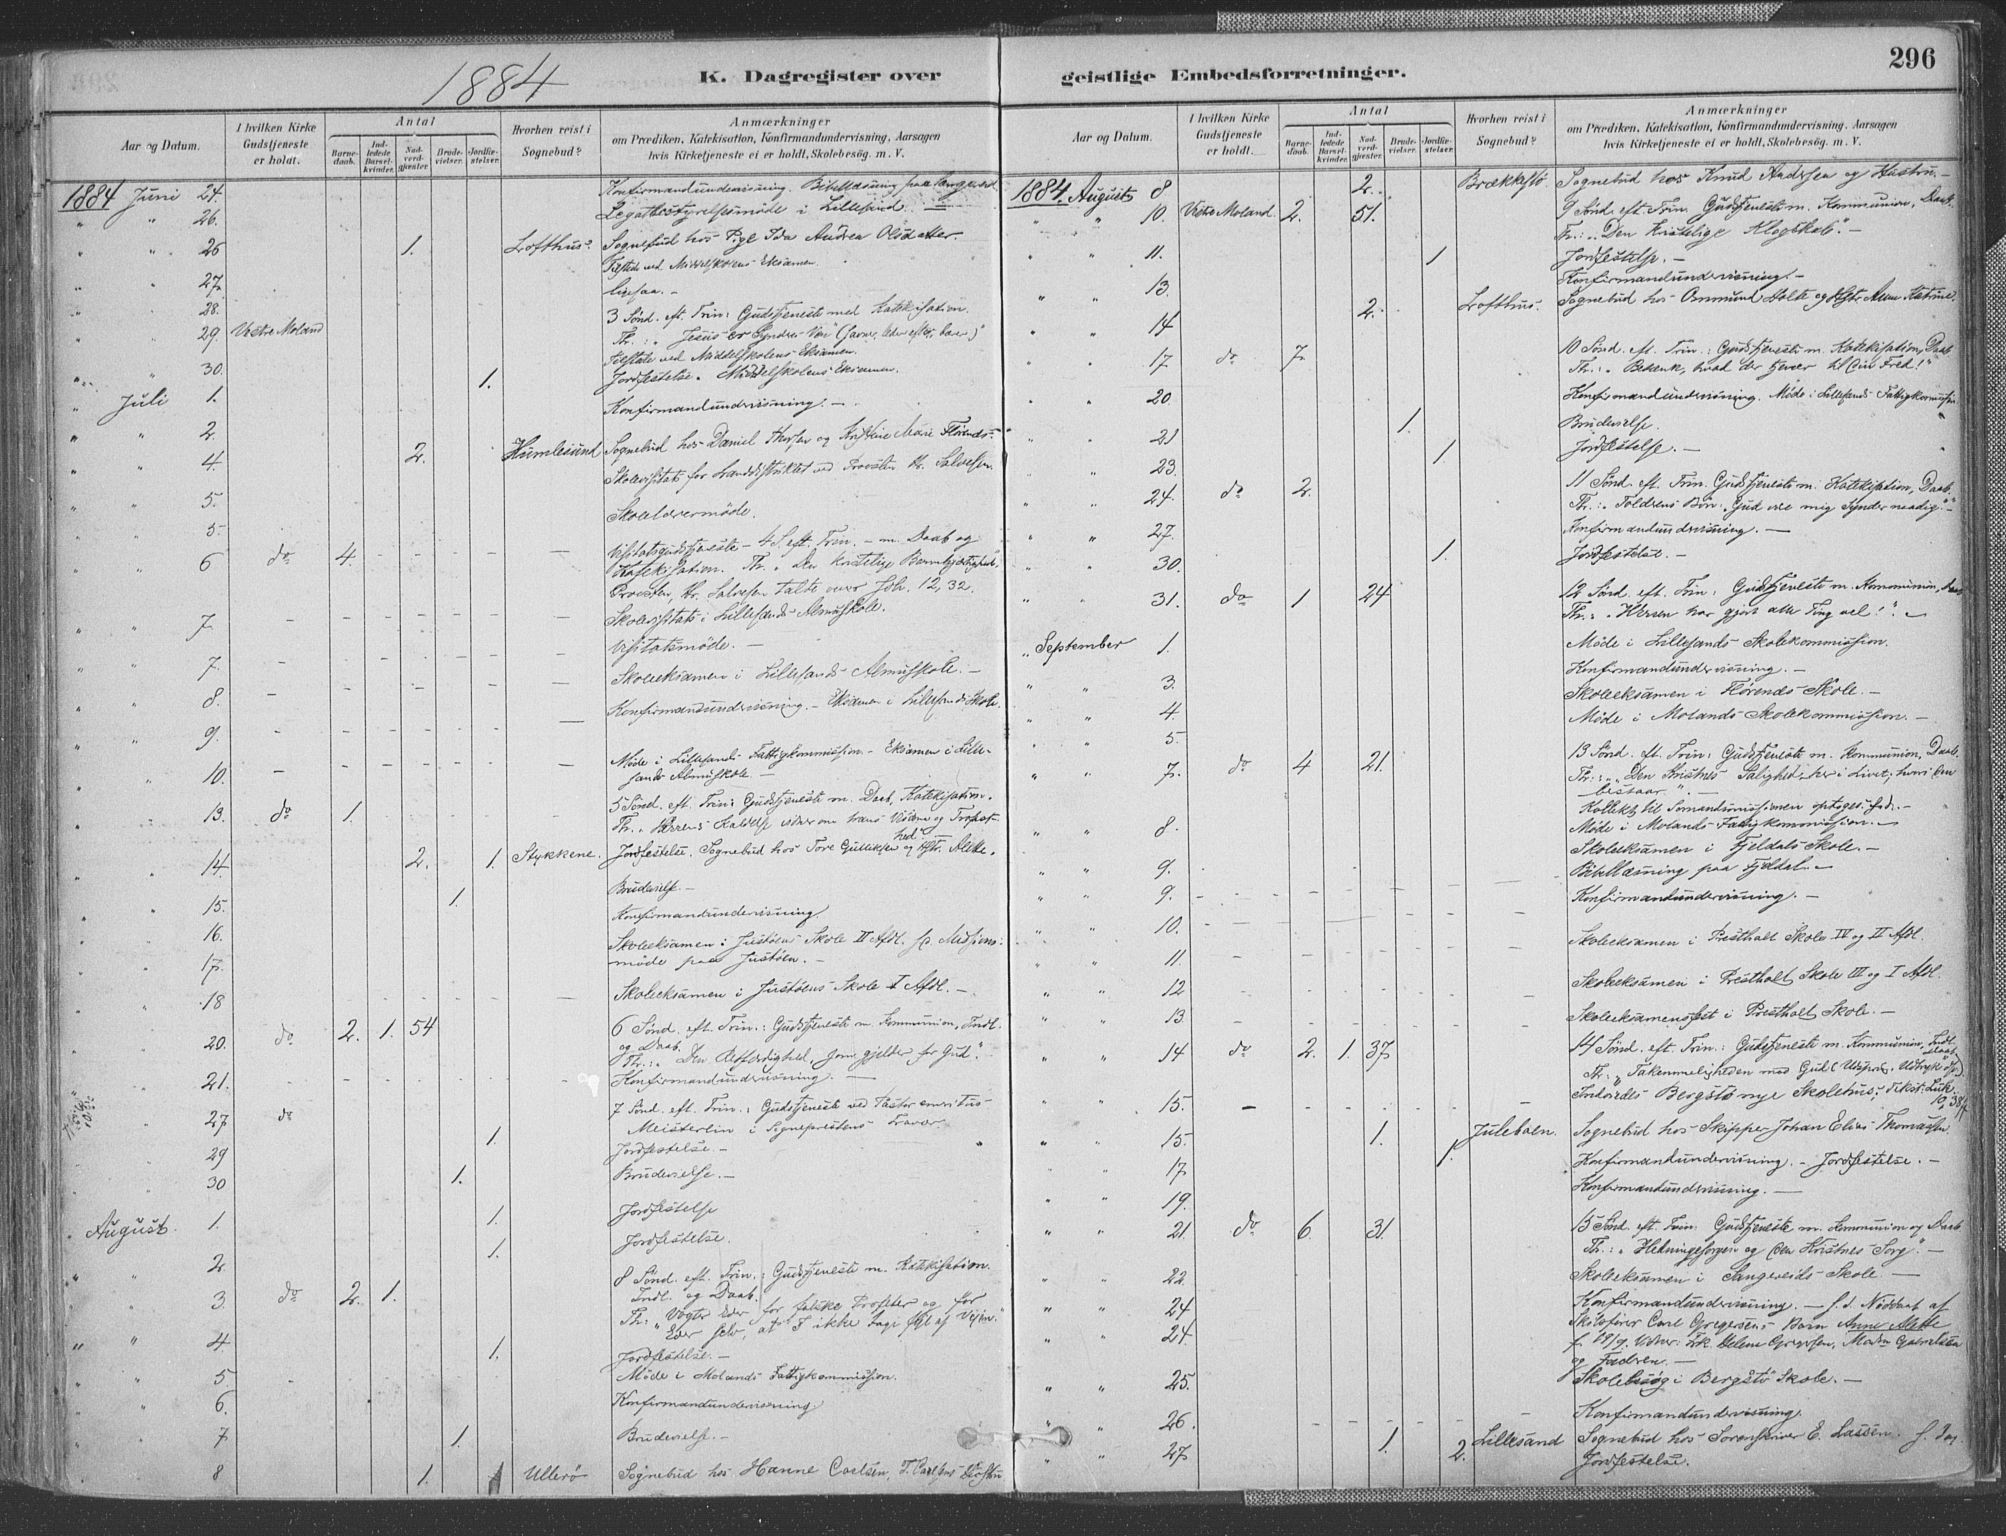 296
1884
K. Dagregister over geistlige Embedsforretninger.
Aar og Datum.
I hvilken Kirke Gudstjeneste er holdt.
Antal
Barnedaab.
Indledede Barselkvinder.
Nadverdgjæster.
Brudevielser.
Jordfæstelser.
Hvorhen reist i Sognebud?
Anmærkninger
om Prædiken, Katekisation, Konfirmandundervisning, Aarsagen
hvis Kirketjeneste ei er holdt, Skolebesög. m. V.
1884 Juni 24. Konfirmandundervisning. Bibellæsning paa
" " 26. Legatbestyrelsesmöde i Lillesand.
" " 26 1. Lofthus? Sognebud hos Pige Ida Andrea Olsdatter.
Tilstede ved Middelskolens Eksamen.
" " 27. ligesaa. -
" " 28.
" " 29. Vestre Moland 3 Sönd. eft. Trin: Gudstjeneste med Katekisation.
Th.: "Jesus er Synderes Ven"
Tilstede ved Middelskolens Eksamen.
" " 30. 1. Jordfestelse. Middelskolens Eksamen.
" Juli 1. Konfirmandundervisning. -
" " 2. 2. Humlesund Sognebud hos Daniel Thorsen og Kristine Marie
" " 4. Skolevisitats for Landdistriktet ved Provsten Hr. Salvesen.
" " 5. Skolelærermöde.
" " 5.
" " 6 do 4. Visitatsgudstjeneste - 4 S. eft. Trin. - m. Daab og
Katekisation. Th. "Den kristelige Barmhjertighed".
Provsten, Hr. Salvesen talte over Joh. 12, 32.
" " 7. Skolevisitats i Lillesands Almuskole.
Visitatsmöde. -
" " 7. Skoleeksamen i Lillesands Almuskole. -
" " 8. Konfirmandundervisning. - Eksamen i Lillesands Skole.
" " 9.
" " 10. Möde i Lillesands Fattigkommission - Eksamen i Lillesands Almuskole -
" " 13. do 1. 5 Sönd. eft. Trin: Gudstjeneste m. Daab, Katekisation.
" " 14. 2. 1. Stykkene. Jordfestelse. Sognebud hos Tore Gulliksen og Hstr.
" " 15. 1. Brudevielse -
" " 16. Konfirmandundervisning
" " 17. Skoleeksamen i Justöens Skole II Afdl.
möde paa Justöen. -
" " 18 Skoleeksamen i Justöens Skole I Afdl. -
" " 20. do 2. 1. 54 6 Sönd. eft. Trin.: Gudstjeneste m. Kommunion, Indl.
og Daab.
Th.: "Den Retfærdighed, som gjelder for Gud."
" " 21. Konfirmandundervisning. -
" " 27 do 7 Sönd. eft. Trin.: Gudstjeneste ved Pastor emeritus
Meisterlin i Sogneprestens Fravær
" " 29 1. Jordfestelse. -
" " 30 1. Brudevielse. -
August. 1. 1. Jordfestelse
" " 2 1. Jordfestelse.
" " 3. do 2. 1. 8 Sönd. eft. Trin.: Gudstjeneste m. Katekisation.
Indl. og Daab.
Th.: "Vogter Eder for falske Profeter og for
Eder selv, at I ikke
" " 4 1. Jordfestelse. -
" " 5 Möde i Molands Fattigkommission.
" " 6. Konfirmandundervisning
" " 7 1. Brudevielse. -
" " 8 1. Ulleröe Sognebud hos Hanne Carlsen,
1884 August 8 2. Brækkestö Sognebud hos Knud Andersen og Hustru. -
" " 10. Vestre Moland. 2. 51. 9 Sönd. eft. Trin. Gudstjeneste m. Kommunion, Daab.
Th.: "Den kristelige Klogskab". -
" " 11. 1 Jordfestelse. -
" " 13. Konfirmandundervisning. -
" " 14 2. Lofthus. Sognebud hos Osmund Holte og Hstr. Anne Katrine
" " 17 do 7. 10 Sönd. eft. Trin.: Gudstjeneste m. Katekisation, Daab
Th.: "Betænk, hvad der tjener til Din Fred!"
" " 20. Konfirmandundervisning. Möde i Lillesands Fattigkommission
" " 21 1. Brudevielse.
" " 23. 1 Jordfestelse. -
" " 24. do 2. 11 Sönd. eft. Trin. Gudstjeneste m. Katekisation, Daab.
Th.: Tolderens Bön: "Gud vær mig Synder naadig". -
" " 27. Konfirmandundervisning. -
" " 30. 1. Jordfestelse. -
" " 31. do 1 24 12 Sönd. eft. Trin: Gudstjeneste m. Kommunion, Daab
Th.: "Herren har gjort alle Ting vel!". -
" September 1. Möde i Lillesands Skolekommission.
Konfirmandundervisning. -
" " 3. Skoleeksamen i Skole. -
" " 4. Möde i Molands Skolekommission. -
" " 5.
" " 7. do 4 21. 13 Sönd. eft. Trin: Gudstjeneste m. Kommunion, Daab.
Th.: "Den Kristnes Salighed her i Livet, hvori den
bestaar". -
Kollekt til Sömandsmissionen
" " 8. Möde i Molands Fattigkommission. -
Skoleeksamen i Fjeldals Skole. -
" " 9. Bibellæsning paa Fjeldal. -
" " 9. Konfirmandundervisning. -
" " 10.
" " 11 Skoleeksamen i Prestholt Skole IV og II Afdl.
" " 12 Skoleeksamen i Prestholt Skole III og I Afdl.
" " 13. Skoleeksamen i Prestholt Skole. -
" " 14 do 2. 1. 37 14 Sönd. eft. Trin.: Gudstjeneste m. Kommunion, Indl.
Daab
Th.: "Taknemmeligheden mod Gud
" " 15. Indviedes Bergstö nye Skolehus; Tekst: Luk.
10, 38
" " 15. 1. Julebaen. Sognebud hos Skipper Johan Elias Thomassen
" " 17 1. Konfirmandundervisning. - Jordfestelse. -
" " 19. Konfirmandundervisning. -
" " 21. do 6. 31. 15 Sönd. eft. Trin: Gudstjeneste m. Kommunion og Daab
Th.: "Hedningesorgen og den Kristnes Sorg". -
" " 22. Skoleeksamen i Sangereids Skole. -
" " 24 Konfirmandundervisning. - s. d. Nöddaab af
" " 24. Carl Gregersens Barn Anne Mette
Helene Gregersen,
og Faderen. -
" " 25. Skolebesög i Bergstö Skole. -
" " 26. Konfirmandundervisning
" " 27 1. 2. Lillesand Sognebud hos Sorenskriver E. Lassen.
Jordfestelse.